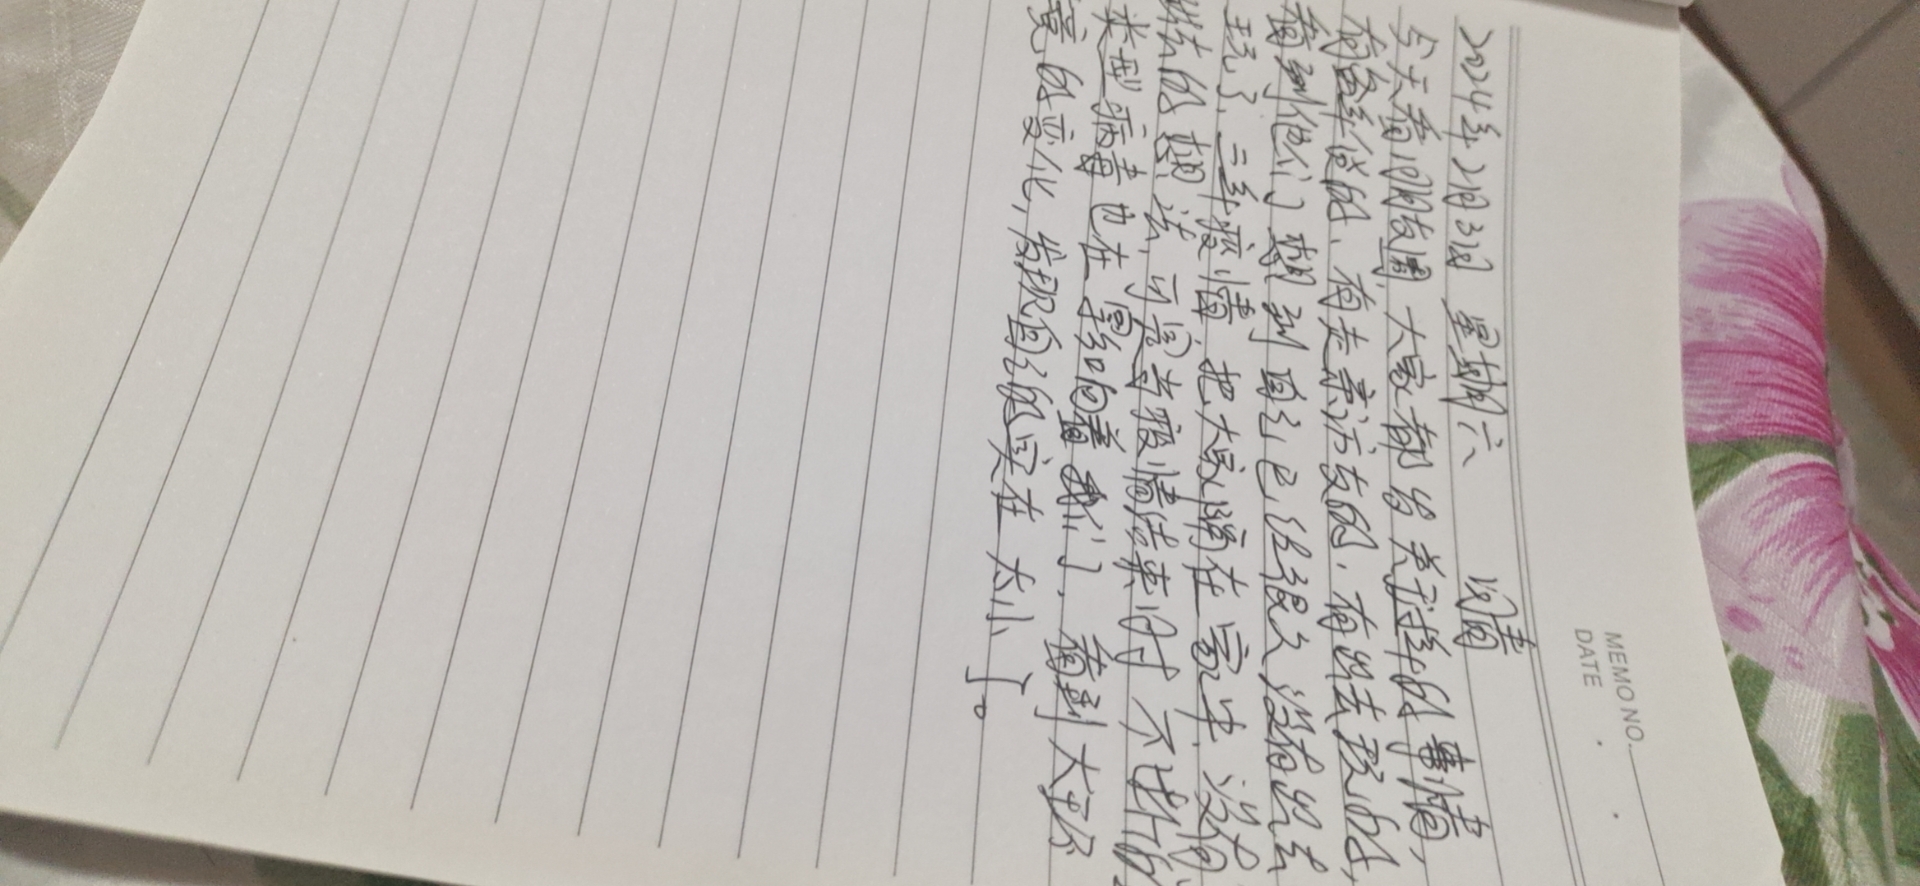 MEMO NO.
DATE
2024年2月3日 星期六 晴
今天看朋友圈,大家都当关于拜年的事情,
有备年货的、有走亲访友的,有出去玩的,
看到他们想到自己已经很久没有出去
玩了,三年疫情,把大家隔在家里,没有
出去的想法,可是当疫情结束时,不断的
类型病毒也在影响着我们,看到大环
境的变化,发现自己的实在太小了。